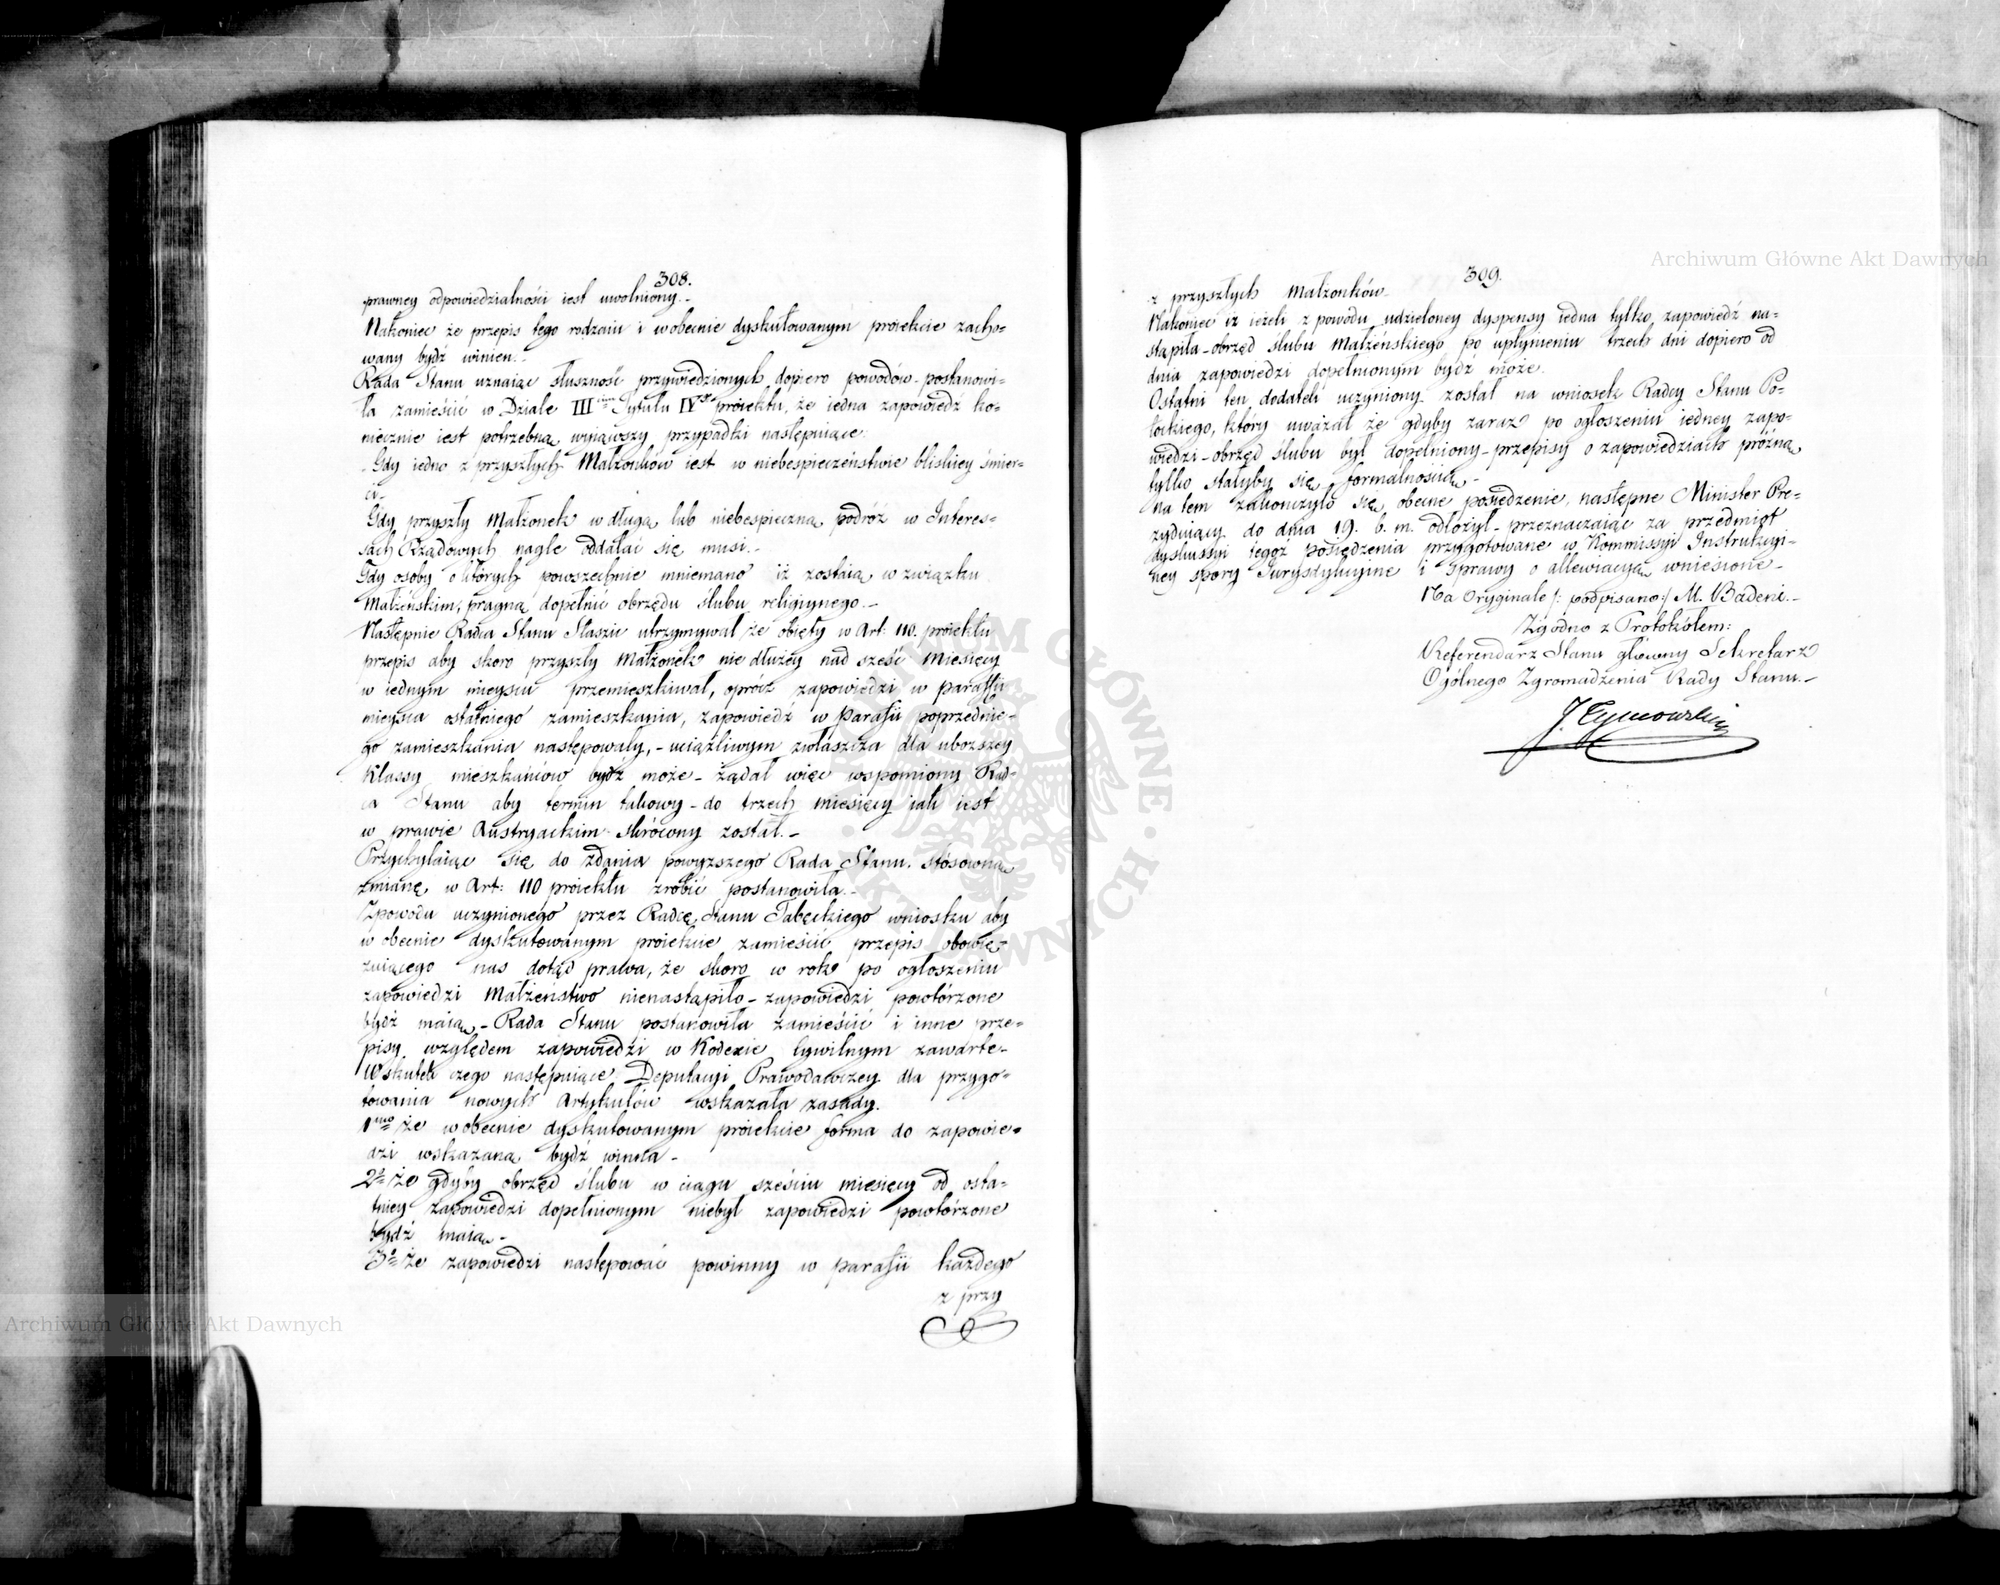 308.
prawney odpowiedzialności iest uwolniony.-
Nakoniec że przepis tego rodzaiu i w obecnie dyskutowanym proiekcie zacho-
wany bydź winien.-
Rada Stanu uznaiąc słuszność przywiedzionych dopiero powodów- postanowi-
ła zamieścić w Dziale III Tytułu IV proiektu, że iedna zapowiedź ko-
niecznie iest potrzebną wyiąwszy przypadki następuiące:
- Gdy iedno z przyszłych Małżonków iest w niebespieczeństwie bliskiey śmier-
ci-
Gdy przyszły Małżonek w długą lub niebespieczną podróż w Interes-
sach Rządowych nagle oddalać się musi.-
Gdy osoby o których powszechnie mniemano iż zostaią w związku
Małżeńskim, pragną dopełnić obrzędu ślubu religiynego.-
Następnie Radca Stanu Staszic utrzymywał że obięty w Art: 110. proiektu
przepis aby skoro przyszły Małżonek nie dłużey nad sześć Miesięcy
w iednym mieyscu przemieszkiwał, oprócz zapowiedzi w parafii
mieysca ostatniego zamieszkania, zapowiedź w parafii poprzednie-
go zamieszkania następowały,- uciążliwym zwłaszcza dla uboższey
Klassy mieszkańców bydź może- żądał więc wspomiony Rad-
ca Stanu aby termin takowy- do trzech miesięcy iak iest
w prawie Austryackim skrócony został.-
Przychylaiąc się do zdania powyższego Rada Stanu. stósowną
zmianę w Art: 110 proiektu zrobić postanowiła.-
Zpowodu uczynionego przez Radcę Stanu Tabęckiego wniosku aby
w obecnie dyskutowanym proiekcie zamieścić przepis obowią-
zuiącego nas dotąd prawa, że skoro w rok po ogłoszeniu
zapowiedzi Małżeństwo nienastąpiło- zapowiedzi powtórzone
bydź maią- Rada Stanu postanowiła zamieścić i inne prze-
pisy względem zapowiedzi w Kodexie Cywilnym zawarte-
Wskutek czego następuiące Deputacyi Prawodawczey dla przygo-
towania nowych Artykułów wskazała zasady.
1mo że w obecnie dyskutowanym proiekcie forma do zapowie-
dzi wskazaną bydź winna-
2° że gdyby obrzęd ślubu w ciągu sześciu miesięcy od osta-
tniey zapowiedzi dopełnionym niebył zapowiedzi powtórzone
bydź maią-
3° że zapowiedzi następować powinny w parafii każdego
z przy
309.
z przyszłych Małżonków-
Nakoniec iż ieżeli z powodu udzieloney dyspensy iedna tylko zapowiedź na-
stąpiła- obrzęd ślubu Małżeńskiego po upłynieniu trzech dni dopiero od
dnia zapowiedzi dopełnionym bydź może.
Ostatni ten dodatek uczyniony został na wniosek Radcy Stanu Po-
tockiego, który uważał że gdyby zaraz po ogłoszeniu iedney zapo-
wiedzi- obrzęd ślubu był dopełniony- przepisy o zapowiedziach próżną
tylko stałyby się formalnością-
na tem zakończyło się obecne posiedzenie, następne Minister Pre-
zyduiący do dnia 19. b. m. odłożył- przeznaczaiąc za przedmiot
dyskussyi tegoż posiędzenia przygotowane w Kommissyi Instrukcyi-
ney spory Jurysdykcyine i sprawy o allewiacyą wniesione-
Na Oryginale /: podpisano:/ M. Badeni.-
Zgodno z Protokółem:
Referendarz Stanu główny Sekretarz
Ogólnego Zgromadzenia Rady Stanu.-
J. Tymowski
Archiwum Główne Akt Dawnych
Archiwum Główne Akt Dawnych
ARCHIWUM GŁÓWNE · AKT DAWNYCH ·